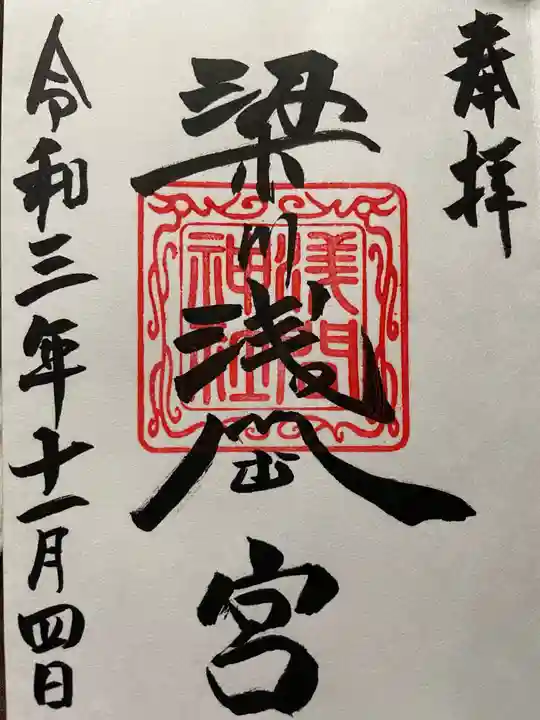 奉拝
梁川浅
宮
浅間
神社
令和三年十一月四日